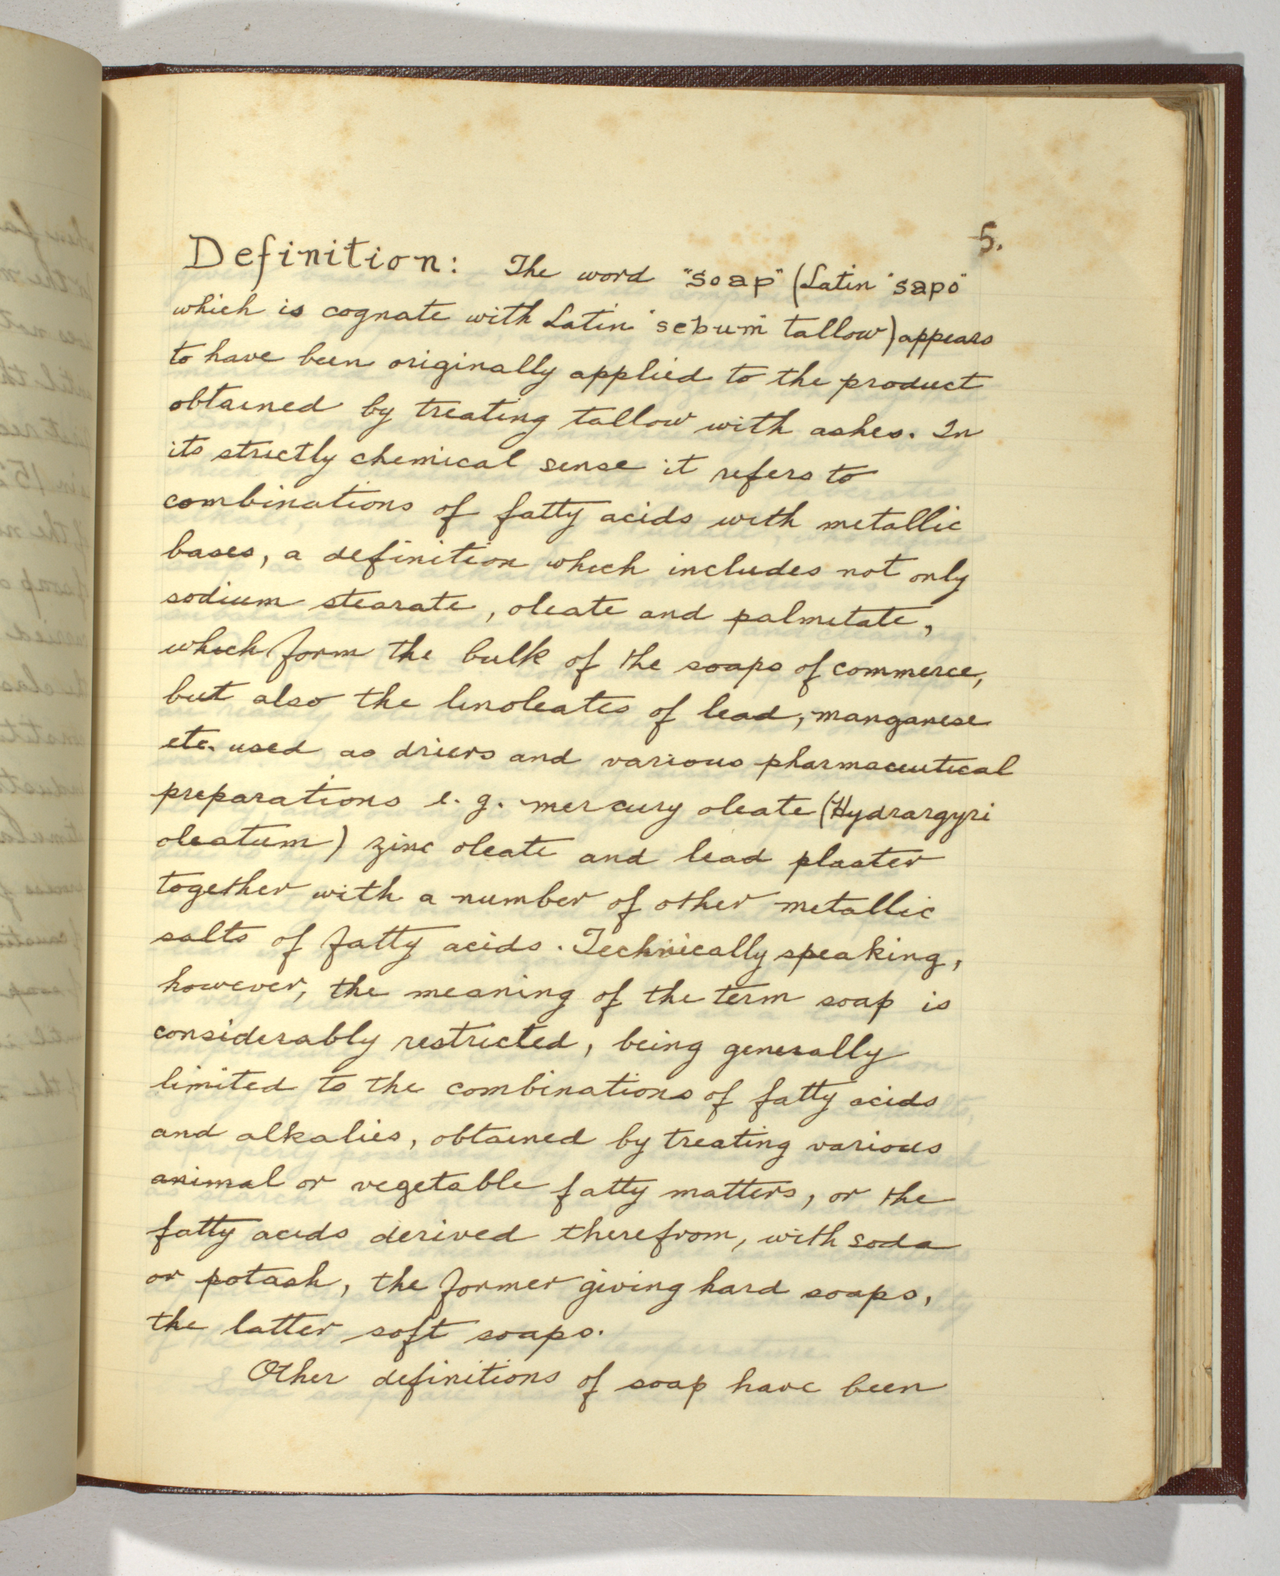 5.
Definition: The word "soap" (Latin "sapo"
which is cognate with Latin "sebum" tallow) appears
to have been originally applied to the product
obtained by treating tallow with ashes. In
its strictly chemical sense it refers to
combinations of fatty acids with metallic
bases, a definition which includes not only
sodium stearate, oleate and palmitate,
which form the bulk of the soaps of commerce,
but also the linoleates of lead, manganese
etc. used as driers and various pharmaceutical
preparations e.g. mercury oleate (Hydrargyri
oleatum) zinc oleate and lead plaster
together with a number of other metallic
salts of fatty acids. Technically speaking,
however, the meaning of the term soap is
considerably restricted, being generally
limited to the combinations of fatty acids
and alkalies, obtained by treating various
animal or vegetable fatty matters, or the
fatty acids derived therefrom, with soda
or potash, the former giving hard soaps,
the latter soft soaps.
Other definitions of soap have been